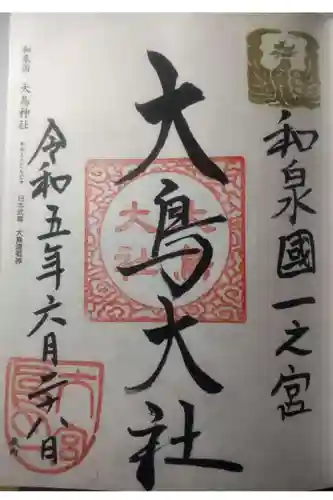 和泉國一之宮
大鳥大社
大鳥
大社
令和五年六月二十八日
和泉国 大鳥神社
日本武尊 大鳥連祖神